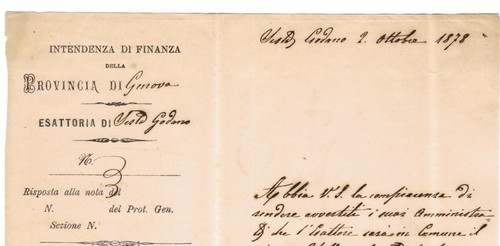 Sesta Godano 2. Ottobre 1878
INTENDENZA DI FINANZA
DELLA
PROVINCIA DI Genova
ESATTORIA DI Sesta Godano
N. 3
Risposta alla nota del
N. del Prot. Gen.
Sezione N.
Abbia V.S. la compiacenza di
rendere avvertiti i suoi Amministra
ti che l'Esattore sarà in Comune il